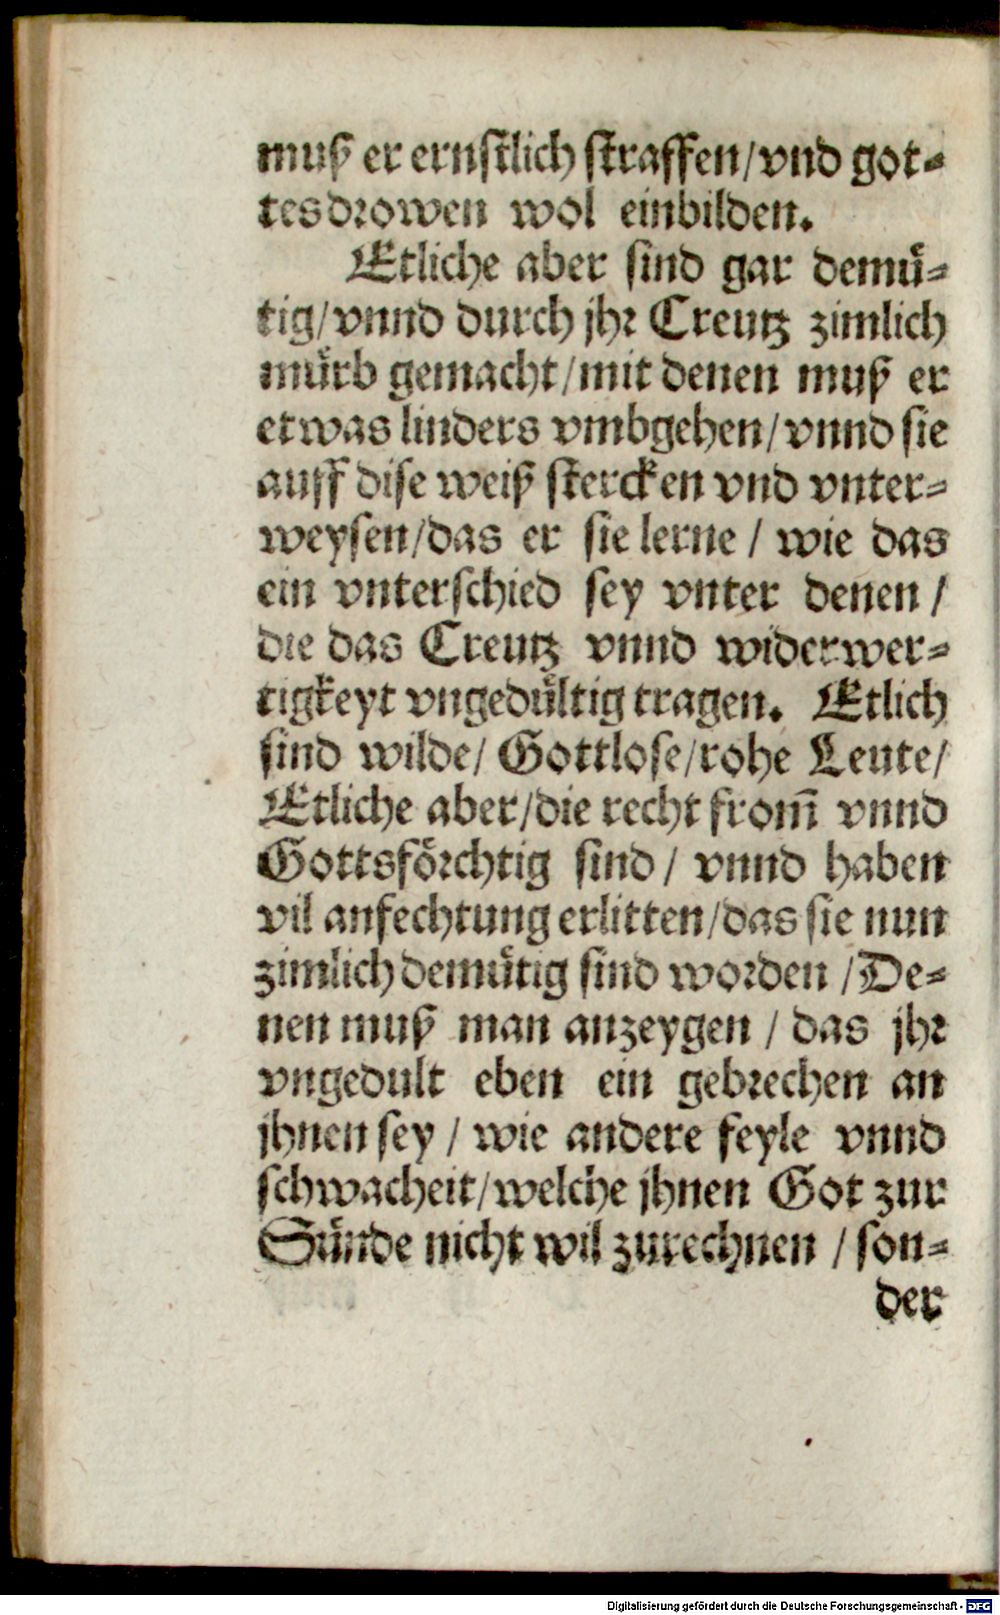 muß er ernstlich straffen/vnd got-
tes drowen wol einbilden.
Etliche aber sind gar demuͤ-
tig/vnnd durch jhr Creutz zimlich
muͤrb gemacht/mit denen muß er
etwas linders vmbgehen/vnnd sie
auff dise weiß stercken vnd vnter-
weysen/das er sie lerne / wie das
ein vnterschied sey vnter denen /
die das Creutz vnnd widerwer-
tigkeyt vngeduͤltig tragen. Etlich
sind wilde/ Gottlose/rohe Leute/
Etliche aber/die recht from̄ vnnd
Gottsfoͤrchtig sind / vnnd haben
vil anfechtung erlitten/das sie nun
zimlich demuͤtig sind worden /De-
nen muß man anzeygen / das jhr
vngedult eben ein gebrechen an
jhnen sey / wie andere feyle vnnd
schwacheit/welche jhnen Got zur
Suͤnde nicht wil zurechnen / son-
der
Digitalisierung gefördert durch die Deutsche Forschungsgemeinschaft - DFG